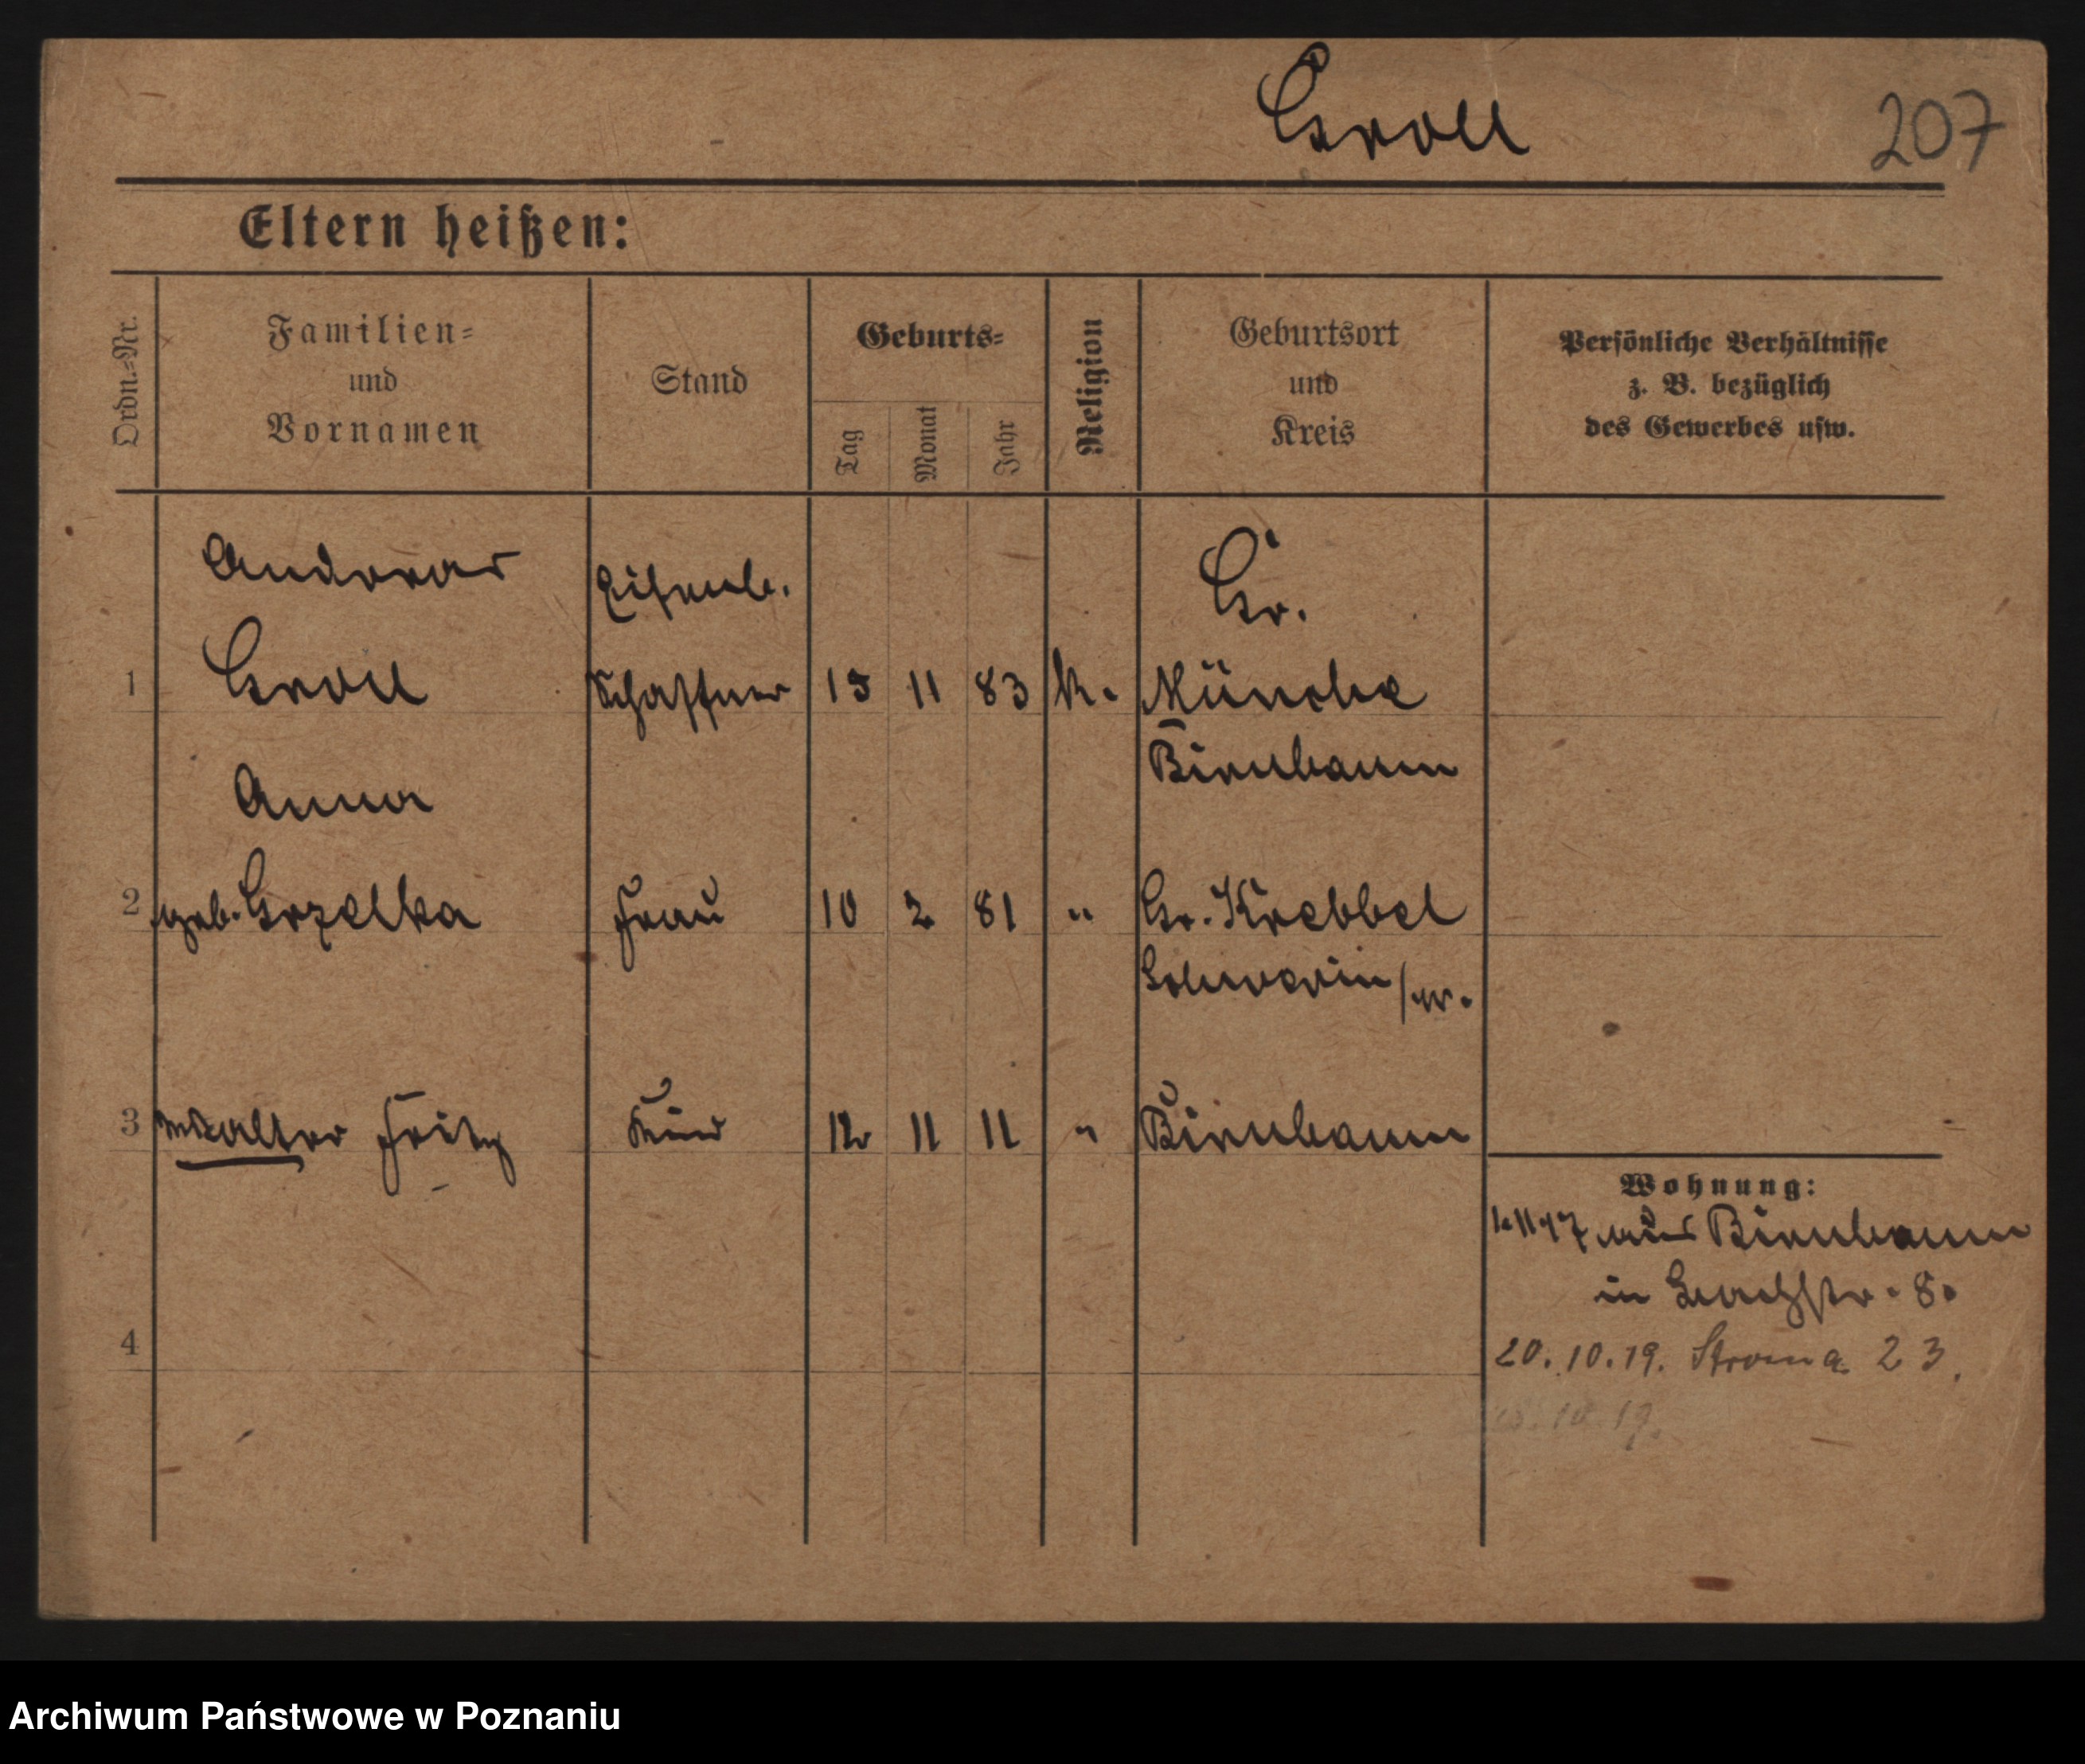 Groll
207
Eltern heißen:
Ordn.-Nr.
Familien-
und
Vornamen
Stand
Geburts-
Tag
Monat
Jahr
Religion
Geburtsort
und
Kreis
Persönliche Verhältnisse
z. B. bezüglich
des Gewerbes usw.
Andreas
Eisenb.
Gr.
1 Groll Schaffner 15 11 83 k. Münche
Birnbaum
Anna
2 geb. Grzelka Frau 10 2 81 " Gr. Krebbel
Schwerin /W.
3 Walter Fritz Kind 12 11 11 " Birnbaum
Wohnung:
17 aus Birnbaum
in 8.
4
20. 10. 19. Stroma 23.
10 19.
Archiwum Państwowe w Poznaniu